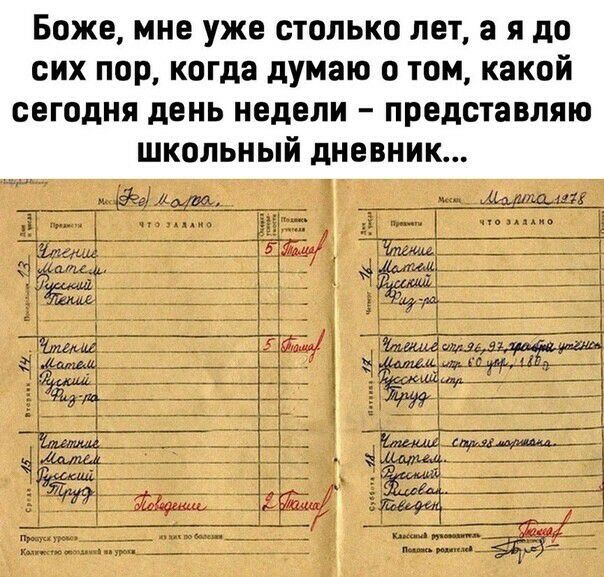 Боже, мне уже столько лет, а я до
сих пор, когда думаю о том, какой
сегодня день недели – представляю
школьный дневник...
Месяц Марта.
Дни и числа Предметы ЧТО ЗАДАНО Подпись учителя
13
Понедельник
Чтение 5 Тамаř
Матем.
Русский
Пение
14
Вторник
Чтение 5
Матем
Руский
Физ-ра
15
Среда
Чтетние
Матем
Русский
Труд
Поведение 2
Пропуск уроков из них по болезни
Количество опозданий на уроки
Месяц Марта 1978
Дни и числа Предметы ЧТО ЗАДАНО
16
Четверг
Чтение
Матем.
Русский
Физ-ра
17
Пятница
Чтение стр. 96, 97,
Матем стр 60 упр,
Русский стр
Труд
18
Суббота
Чтение стр 98
Матем.
Русский
Рисован.
Поведен
Классный руководитель
Подпись родителей